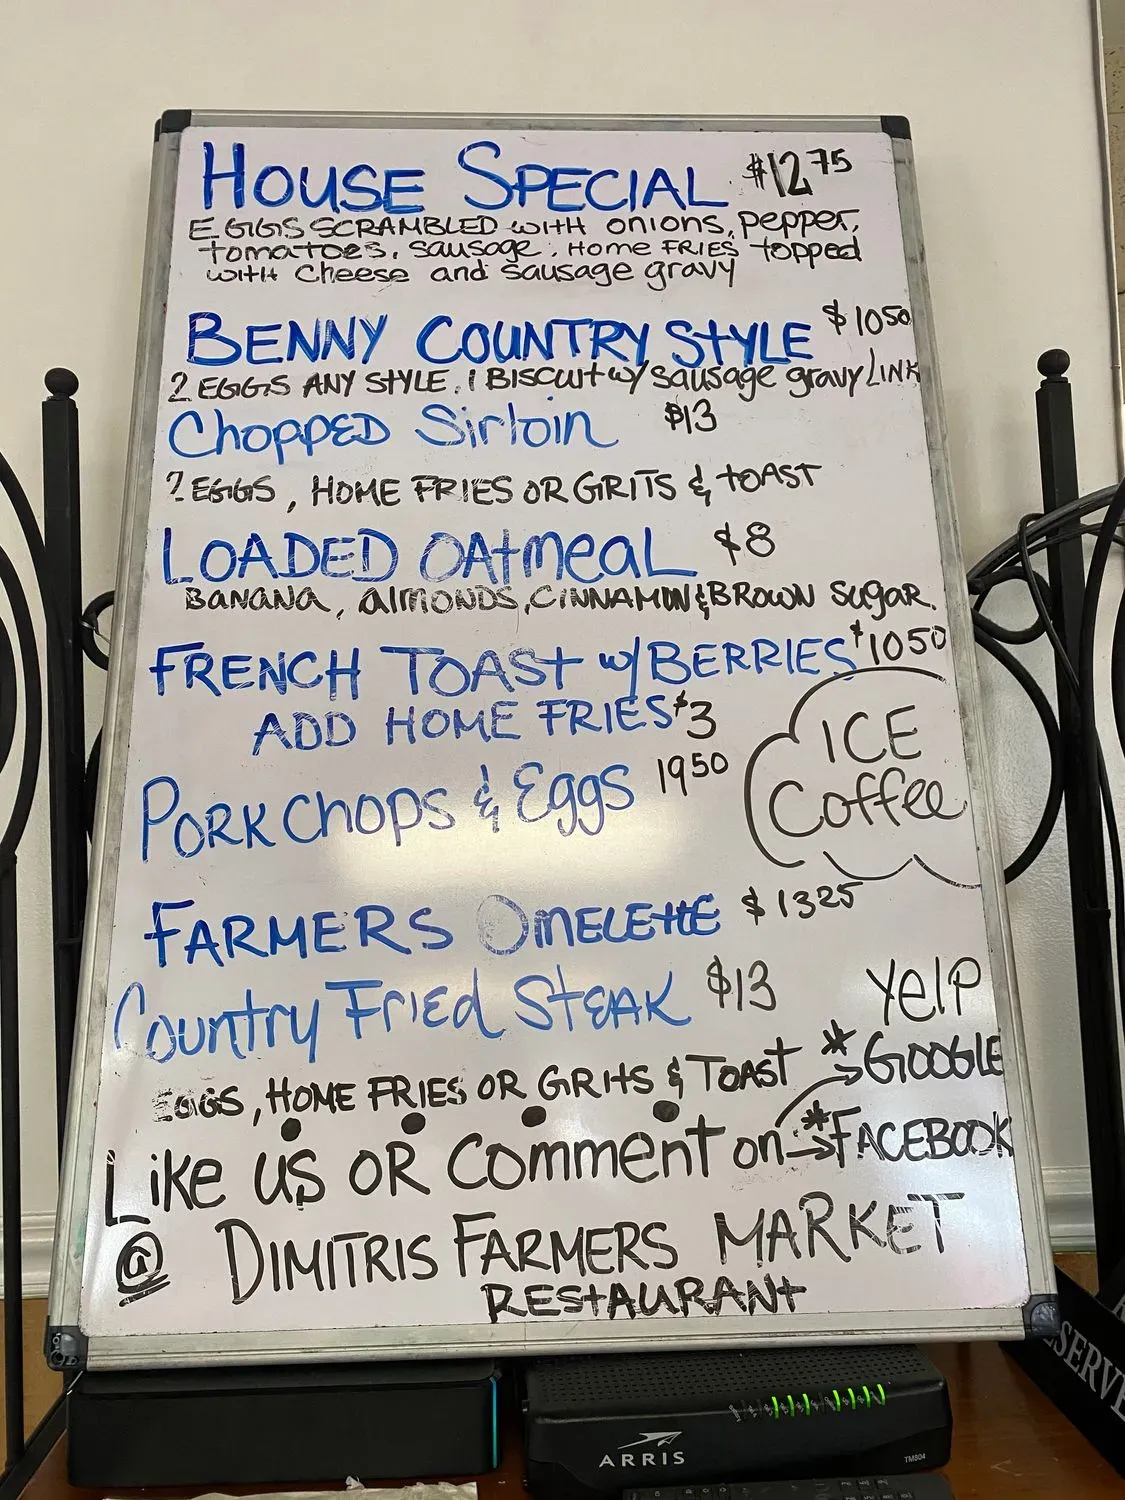 HOUSE SPECIAL $12 75
EGGS SCRAMBLED WITH ONIONS, PEPPER,
tomatoes, sausage, Home FRIES topped
with cheese and sausage gravy
BENNY COUNTRY STYLE $ 10 50
2 EGGS ANY STYLE, 1 BISCUIT W/ sausage gravy LINK
Chopped Sirloin $13
2 EGGS, HOME FRIES OR GRITS & TOAST
LOADED OATMEAL $8
BANANA, ALMONDS, CINNAMIN & BROWN SUGAR.
FRENCH TOAST W/ BERRIES $10 50
ADD HOME FRIES $3
ICE
Coffee
PORK CHOPS & Eggs 19 50
FARMERS OMELETTE $ 13 25
Country Fried STEAK $13
Yelp
EGGS, HOME FRIES OR GRITS & TOAST
* GOOGLE
Like us OR Comment on
* FACEBOOK
@ DIMITRIS FARMERS MARKET
RESTAURANT
ARRIS
TM804